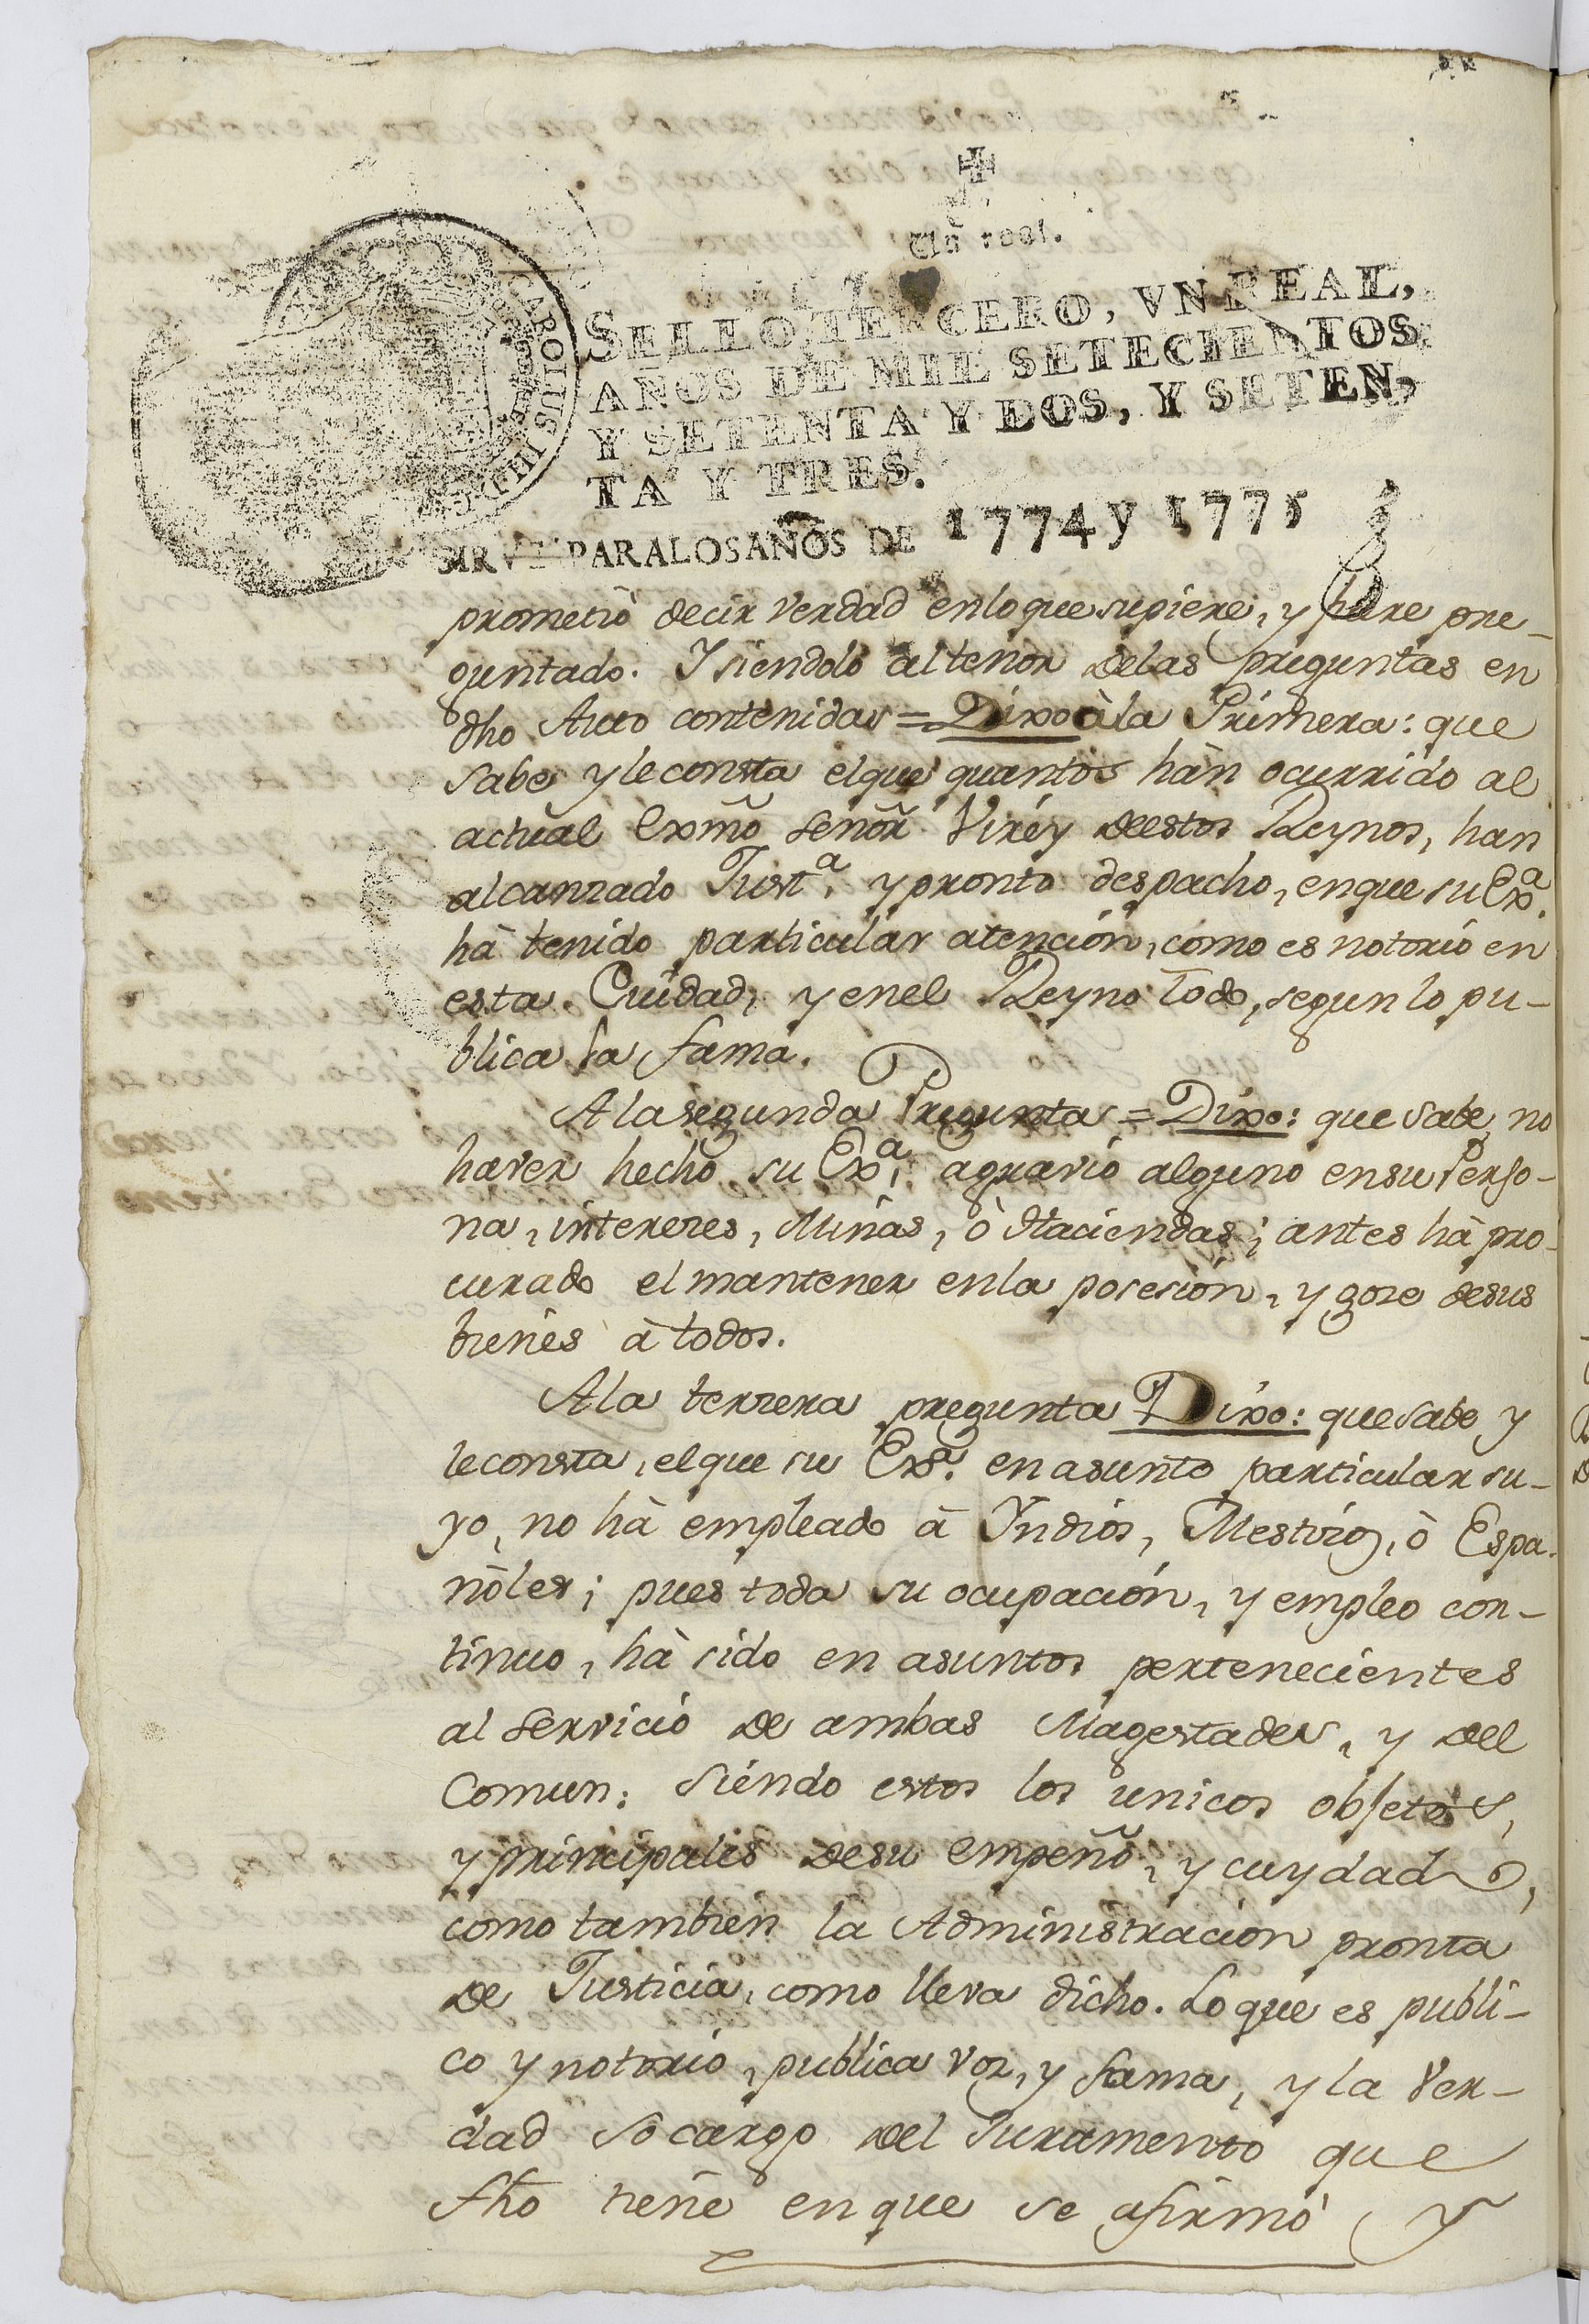 Un real.
SELLO TERCERO, VN REAL,
AÑOS DE MIL SETECIENTOS
Y SETENTA Y DOS, Y SETEN,
TA Y TRES.
SIRVE PARA LOS AÑOS DE 1774 y 1775
CAROLUS III D
prometiò decir verdad en lo que supiere, y fuere pre-
guntado. Y siendolo al tenor de las preguntas en
dho Auto contenidas = Dixo à la Primera: que
sabe y le consta el que quantos hàn ocurrido al
actual Exmõ Señor Viréy de estos Reynos, han
alcanzado Justª. y pronto despacho, en que su Exª.
hà tenido particular atencion, como es notorio en
esta Ciudad, y en el Reyno todo, segun lo pu-
blica la fama.
A la segunda Pregunta = Dixo: que sabe, no
haver hecho su Exª. agravio alguno en su Perso-
na, intereses, Minas, ò Haciendas; antes hà pro-
curado el mantener en la posesion, y goze de sus
bienes à todos.
A la terzera pregunta Dixo: que sabe y
le consta, el que su Exª. en asunto particular su-
yo, no hà empleado à Yndios, Mestizos, ò Espa-
ñoles; pues toda su ocupación, y empleo con-
tinuo, hà sido en asuntos pertenecientes
al Servicio de ambas Magestades, y del
Comun; siendo estos los unicos objetos,
y principales de su empeño, y cuydado,
como tambien la Administracion pronta
de Justicia, como lleva dicho. Lo que es publi-
co y notorio, publica voz, y fama, y la Ver-
dad so cargo del Juramento que
fho tiene en que se afirmò y